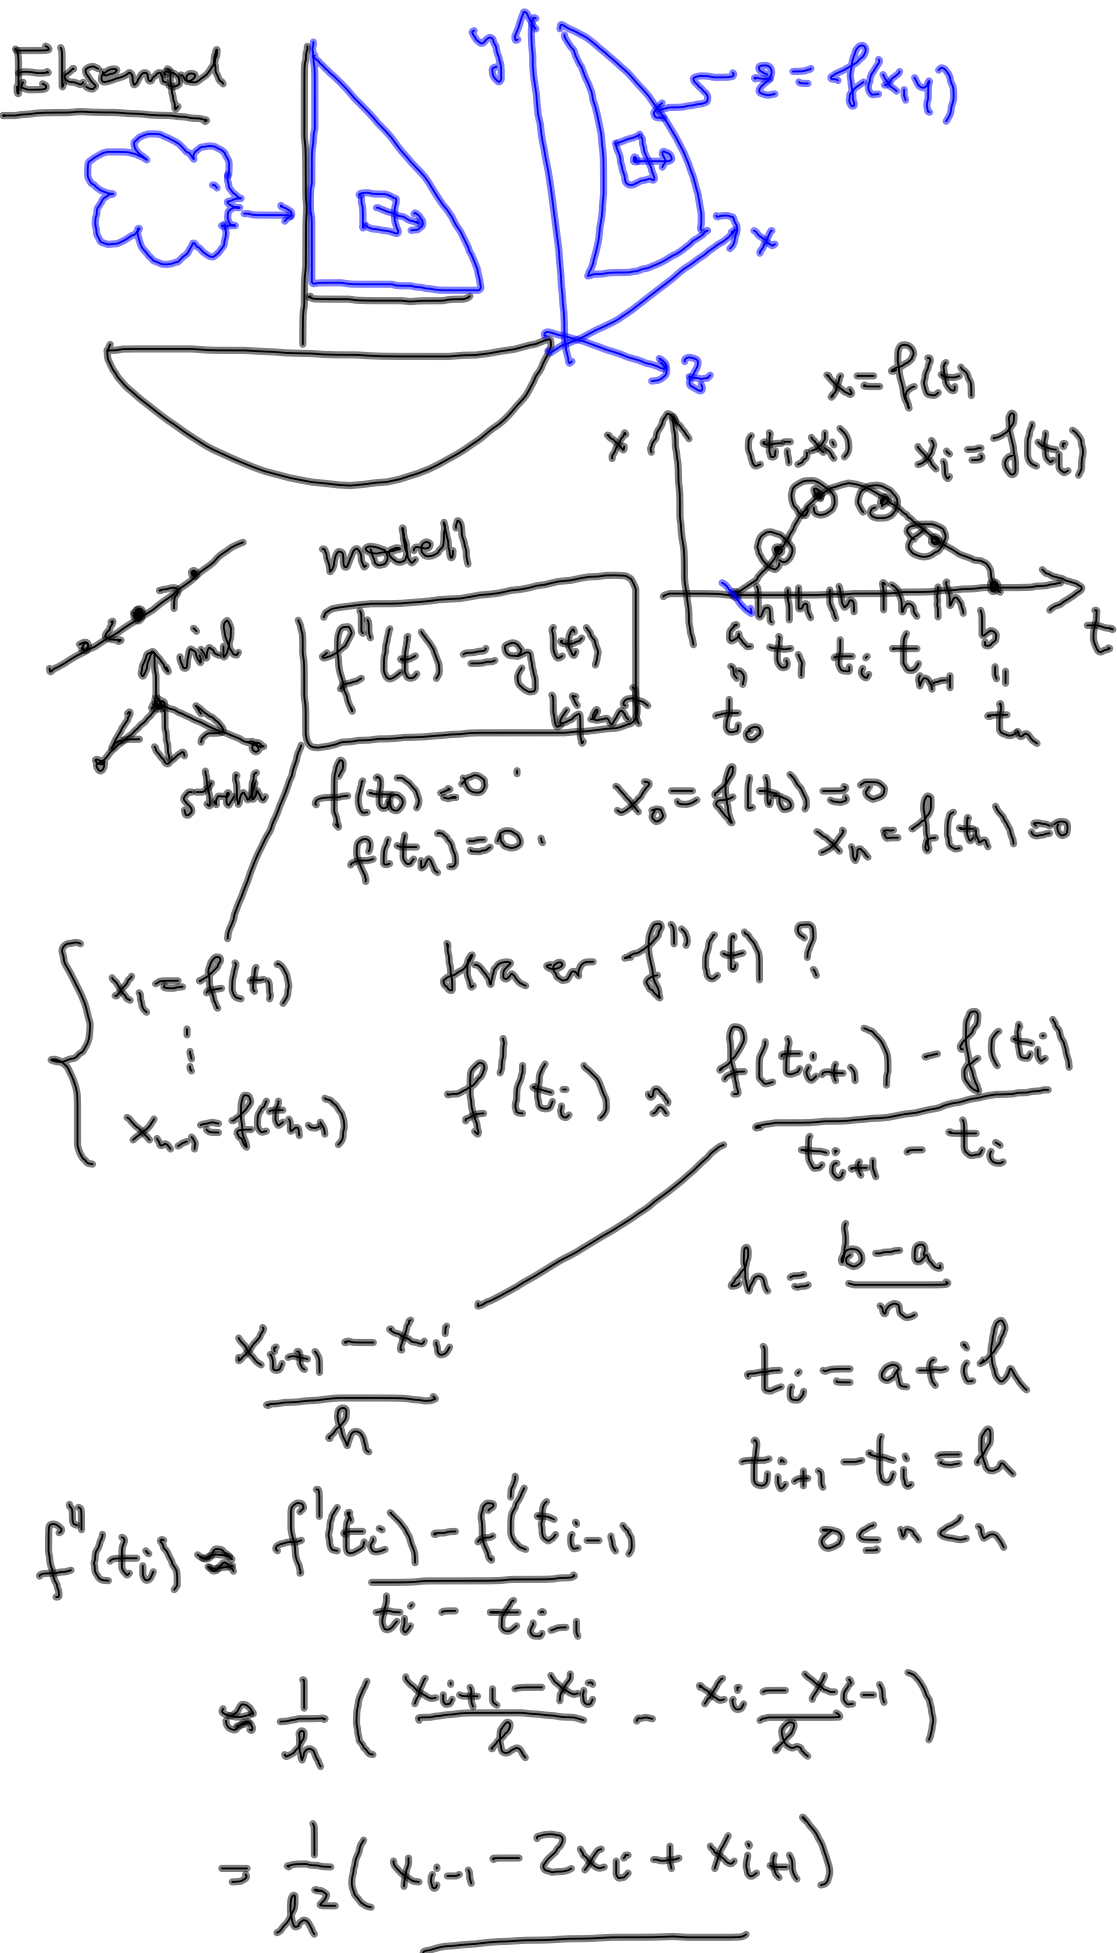 Eksempel
y
z = f(x,y)
x
z
x = f(t)
x
(ti,xi)
xi = f(ti)
modell
h h h h h
a t1 ti tn-1 b
t
t0
tn
vind
f''(t) = g(t)
kjent
strekk
f(t0) = 0
f(tn) = 0
x0 = f(t0) = 0
xn = f(tn) = 0
x1 = f(t1)
⋮
xn-1 = f(tn-1)
Hva er f''(t) ?
f'(ti) ≈ f(ti+1) - f(ti)
ti+1 - ti
h = b - a
n
xi+1 - xi
h
ti = a + ih
ti+1 - ti = h
0 ≤ n < n
f''(ti) ≈ f'(ti) - f'(ti-1)
ti - ti-1
≈ 1/h ( xi+1 - xi / h - xi - xi-1 / h )
= 1/h² ( xi-1 - 2xi + xi+1 )